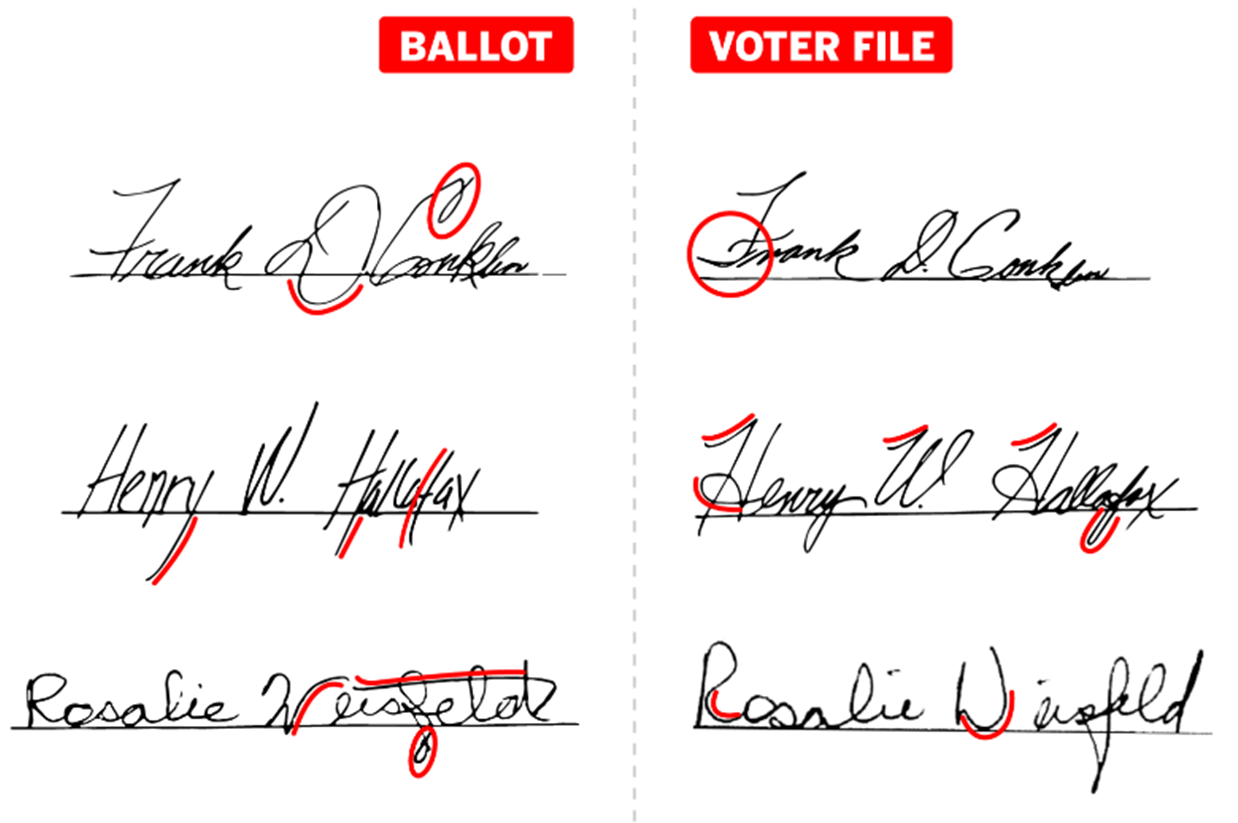 BALLOT VOTER FILE
Frank D. Conklin Frank D. Conklin
Henry W. Hallifax Henry W. Hallofax
Rosalie Weisfeld Rosalie Weisfeld